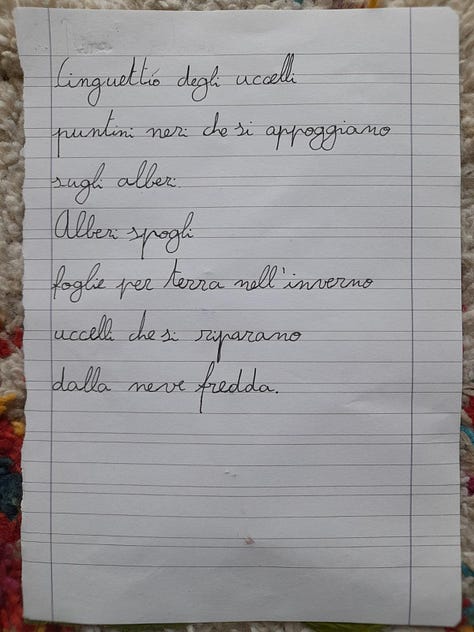 Cinguettió degli uccelli
puntini neri che si appoggiano
sugli alberi.
Alberi spogli
foglie per terra nell'inverno
uccelli che si riparano
dalla neve fredda.